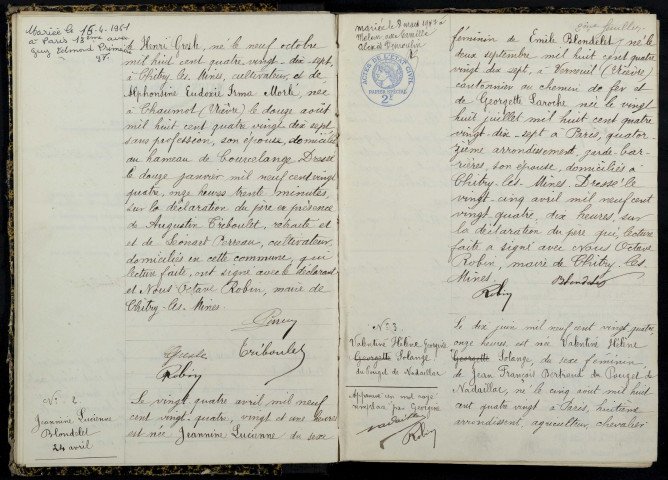 Mariée le 15.4.1961
à Paris 13ème avec
Guy Edmond
de Henri Gresle, né le neuf octobre
mil huit cent quatre vingt-dix-sept,
à Chitry-les-Mines, cultivateur, et de
Alphonsine Eudoxie Irma Morlé, née
à Chaumot (Nièvre) le douze août
mil huit cent quatre vingt-dix sept
sans profession, son épouse, domiciliés
au hameau de Courcelange. Dressé
le douze janvier mil neuf cent vingt
quatre, onze heures trente minutes,
sur la déclaration du père en présence
de Augustin Triboulet, retraité et
et de Léonard Perreau, cultivateur
domiciliés en cette commune, qui
lecture faite, ont signé avec le déclarant
et Nous Octave Robin, maire de
Chitry-les-Mines.
Gresle Triboulet
Robin
No 2
Jeannine Lucienne
Blondelet
24 avril
Le vingt quatre avril mil neuf
cent vingt-quatre, vingt et une heures
est née Jeannine Lucienne du sexe
2ème feuillet
mariée le 8 mars 1947 à
Melun avec
ACTES DE L'ÉTAT CIVIL
PAPIER SPÉCIAL
2F
féminin de Emile Blondelet, né le
deux septembre mil huit cent quatre
vingt dix sept, à Verneuil (Nièvre)
cantonnier au chemin de fer et
de Georgette Laroche née le vingt
huit juillet mil huit cent quatre
vingt-dix-sept à Paris, quator
zième arrondissement, garde-bar-
rières, son épouse, domiciliés à
Chitry-les-Mines. Dressé le
vingt-cinq avril mil neuf cent
vingt quatre, dix heures, sur
la déclaration du père qui, lecture
faite a signé avec Nous Octave
Robin, maire de Chitry-les-
Mines.
Robin Blondelet
No 3
Valentine Hélène Georgine
Georgette Solange
du Pouget de Nadaillac
Approuvé un mot rayé
remplacé par Georgine
Nadaillac
Robin
Le dix juin mil neuf cent vingt quatre,
onze heures, est née Valentine Hélène
Georgette Solange, du sexe féminin
de Jean François Bertrand du Pouget de
Nadaillac, né le cinq août mil huit
cent quatre vingt sept à Paris, huitième
arrondissement, agriculteur, chevalier